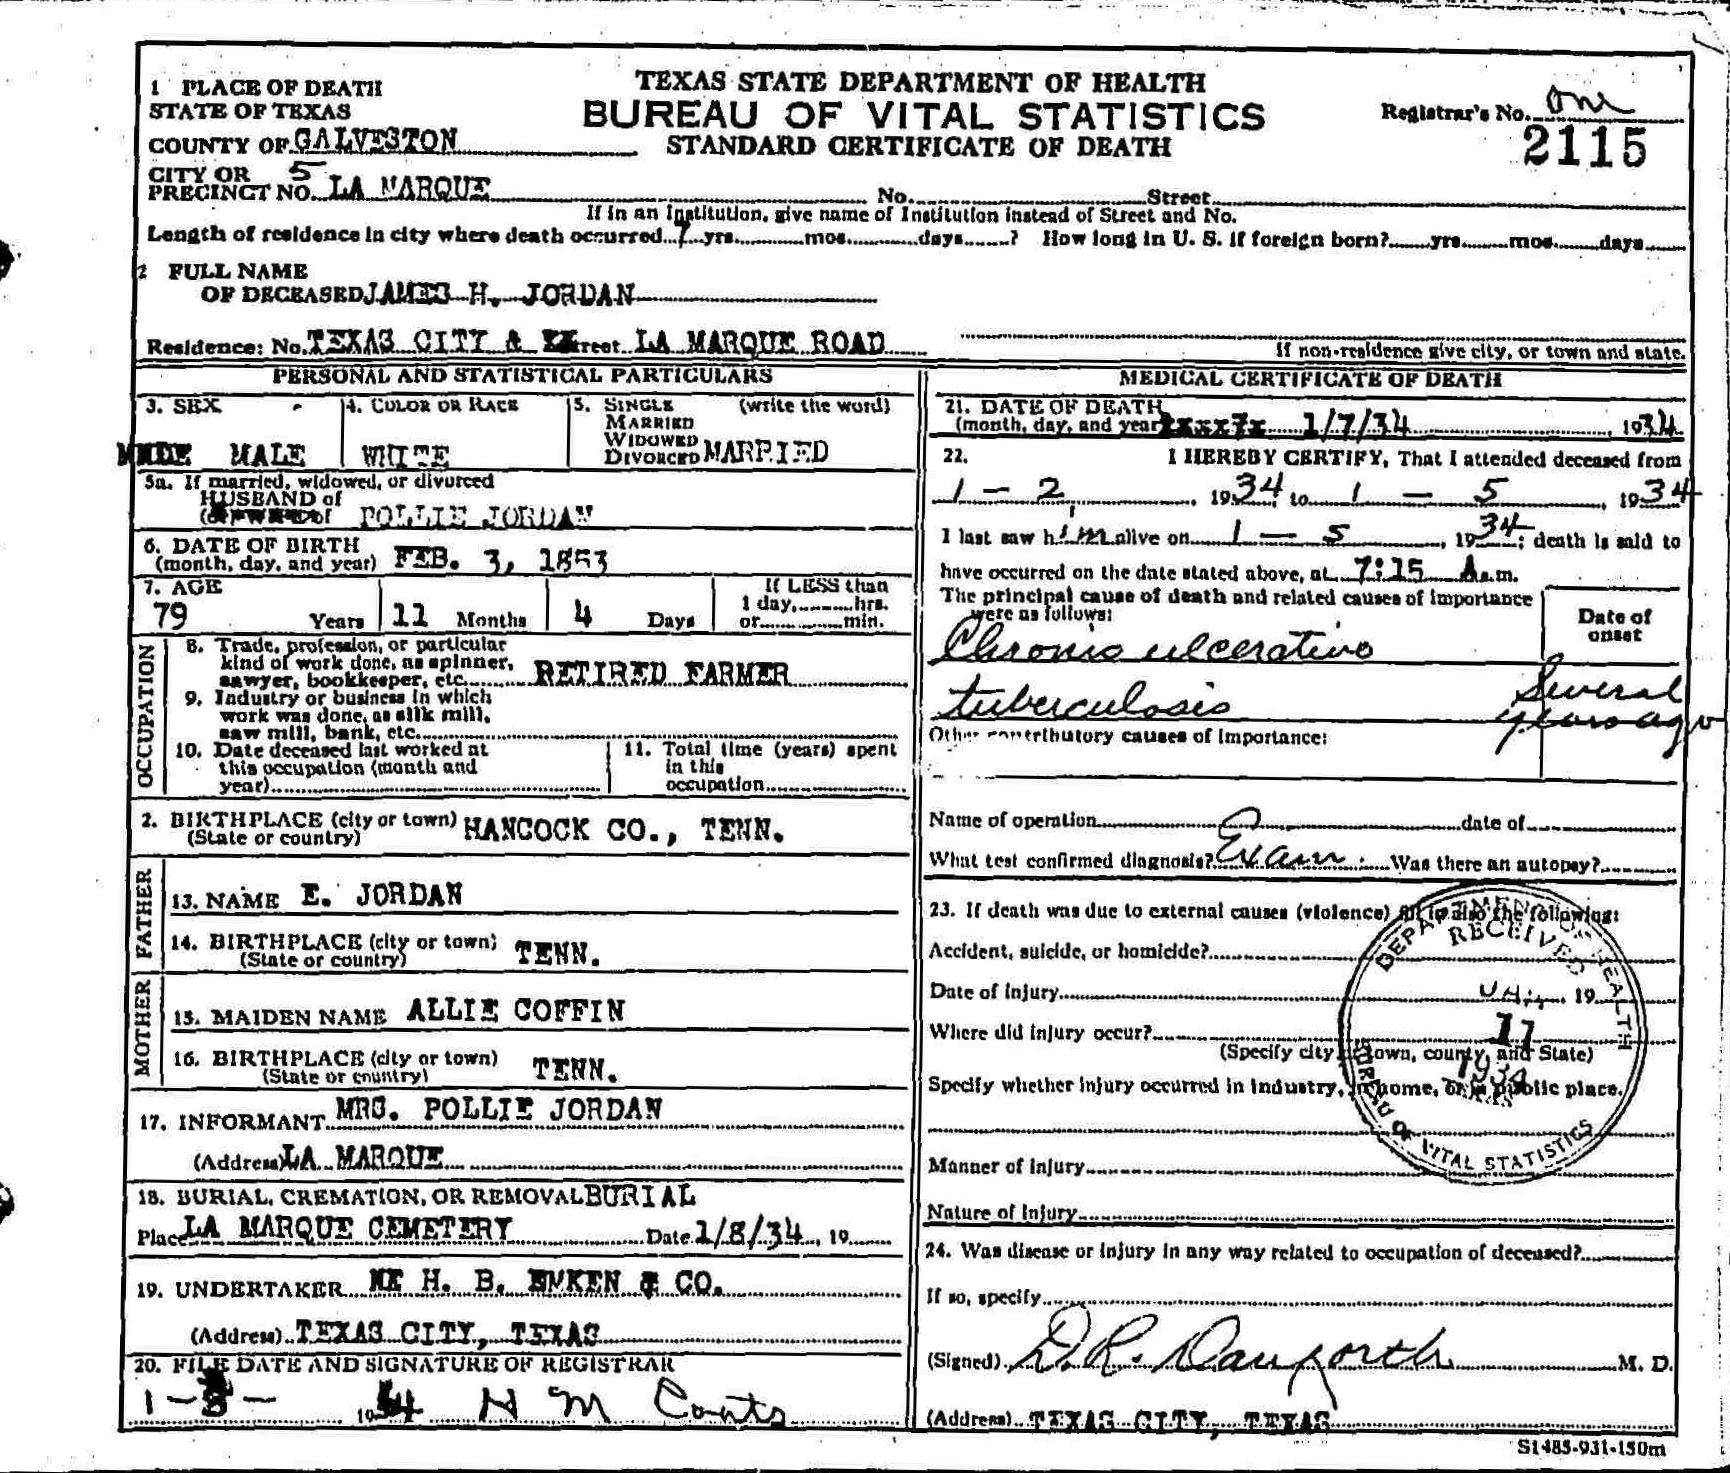 TEXAS STATE DEPARTMENT OF HEALTH
BUREAU OF VITAL STATISTICS
STANDARD CERTIFICATE OF DEATH
Registrar's No. One
2115
1 PLACE OF DEATH
STATE OF TEXAS
COUNTY OF GALVESTON
CITY OR
PRECINCT NO. 5 LA MARQUE No. Street
If in an Institution, give name of Institution instead of Street and No.
Length of residence in city where death occurred 7 yrs. mos. days ? How long in U. S. if foreign born? yrs. mos. days
2 FULL NAME
OF DECEASED JAMES H. JORDAN
Residence: No. TEXAS CITY & Street LA MARQUE ROAD
If non-residence give city, or town and state.
PERSONAL AND STATISTICAL PARTICULARS
3. SEX MALE
4. COLOR OR RACE WHITE
5. SINGLE (write the word)
MARRIED
WIDOWED
DIVORCED MARRIED
5a. If married, widowed, or divorced
HUSBAND of
POLLIE JORDAN
6. DATE OF BIRTH
(month, day, and year) FEB. 3, 1853
7. AGE If LESS than
79 Years 11 Months 4 Days 1 day, hrs.
or min.
OCCUPATION
8. Trade, profession, or particular
kind of work done, as spinner,
sawyer, bookkeeper, etc. RETIRED FARMER
9. Industry or business in which
work was done, as silk mill,
saw mill, bank, etc.
10. Date deceased last worked at
this occupation (month and
year)
11. Total time (years) spent
in this
occupation
2. BIRTHPLACE (city or town) HANCOCK CO., TENN.
(State or country)
FATHER
13. NAME E. JORDAN
14. BIRTHPLACE (city or town) TENN.
(State or country)
MOTHER
15. MAIDEN NAME ALLIE COFFIN
16. BIRTHPLACE (city or town) TENN.
(State or country)
17. INFORMANT MRS. POLLIE JORDAN
(Address) LA MARQUE
18. BURIAL, CREMATION, OR REMOVAL BURIAL
Place LA MARQUE CEMETERY Date 1/8/34, 19
19. UNDERTAKER H. B. EMKEN & CO.
(Address) TEXAS CITY, TEXAS
20. FILE DATE AND SIGNATURE OF REGISTRAR
1-8- 1934 H M Coats
MEDICAL CERTIFICATE OF DEATH
21. DATE OF DEATH
(month, day, and year) 1/7/34, 1934
22. I HEREBY CERTIFY, That I attended deceased from
1 - 2, 1934 to 1 - 5, 1934
I last saw him alive on 1 - 5, 1934; death is said to
have occurred on the date stated above, at 7:15 A.m.
The principal cause of death and related causes of importance
were as follows:
Date of
onset
Chronic ulcerative
tuberculosis
Several
years ago
Other contributory causes of importance:
Name of operation date of
What test confirmed diagnosis? Exam. Was there an autopsy?
23. If death was due to external causes (violence) fill in also the following:
Accident, suicide, or homicide?
Date of injury 19
Where did injury occur?
(Specify city or town, county, and State)
Specify whether injury occurred in industry, in home, or in public place.
Manner of injury
Nature of injury
24. Was disease or injury in any way related to occupation of deceased?
If so, specify
(Signed) D. R. Danforth M. D.
(Address) TEXAS CITY, TEXAS
DEPARTMENT OF HEALTH
RECEIVED
JAN
11
1934
TEXAS
BUREAU OF VITAL STATISTICS
S1485-931-150m